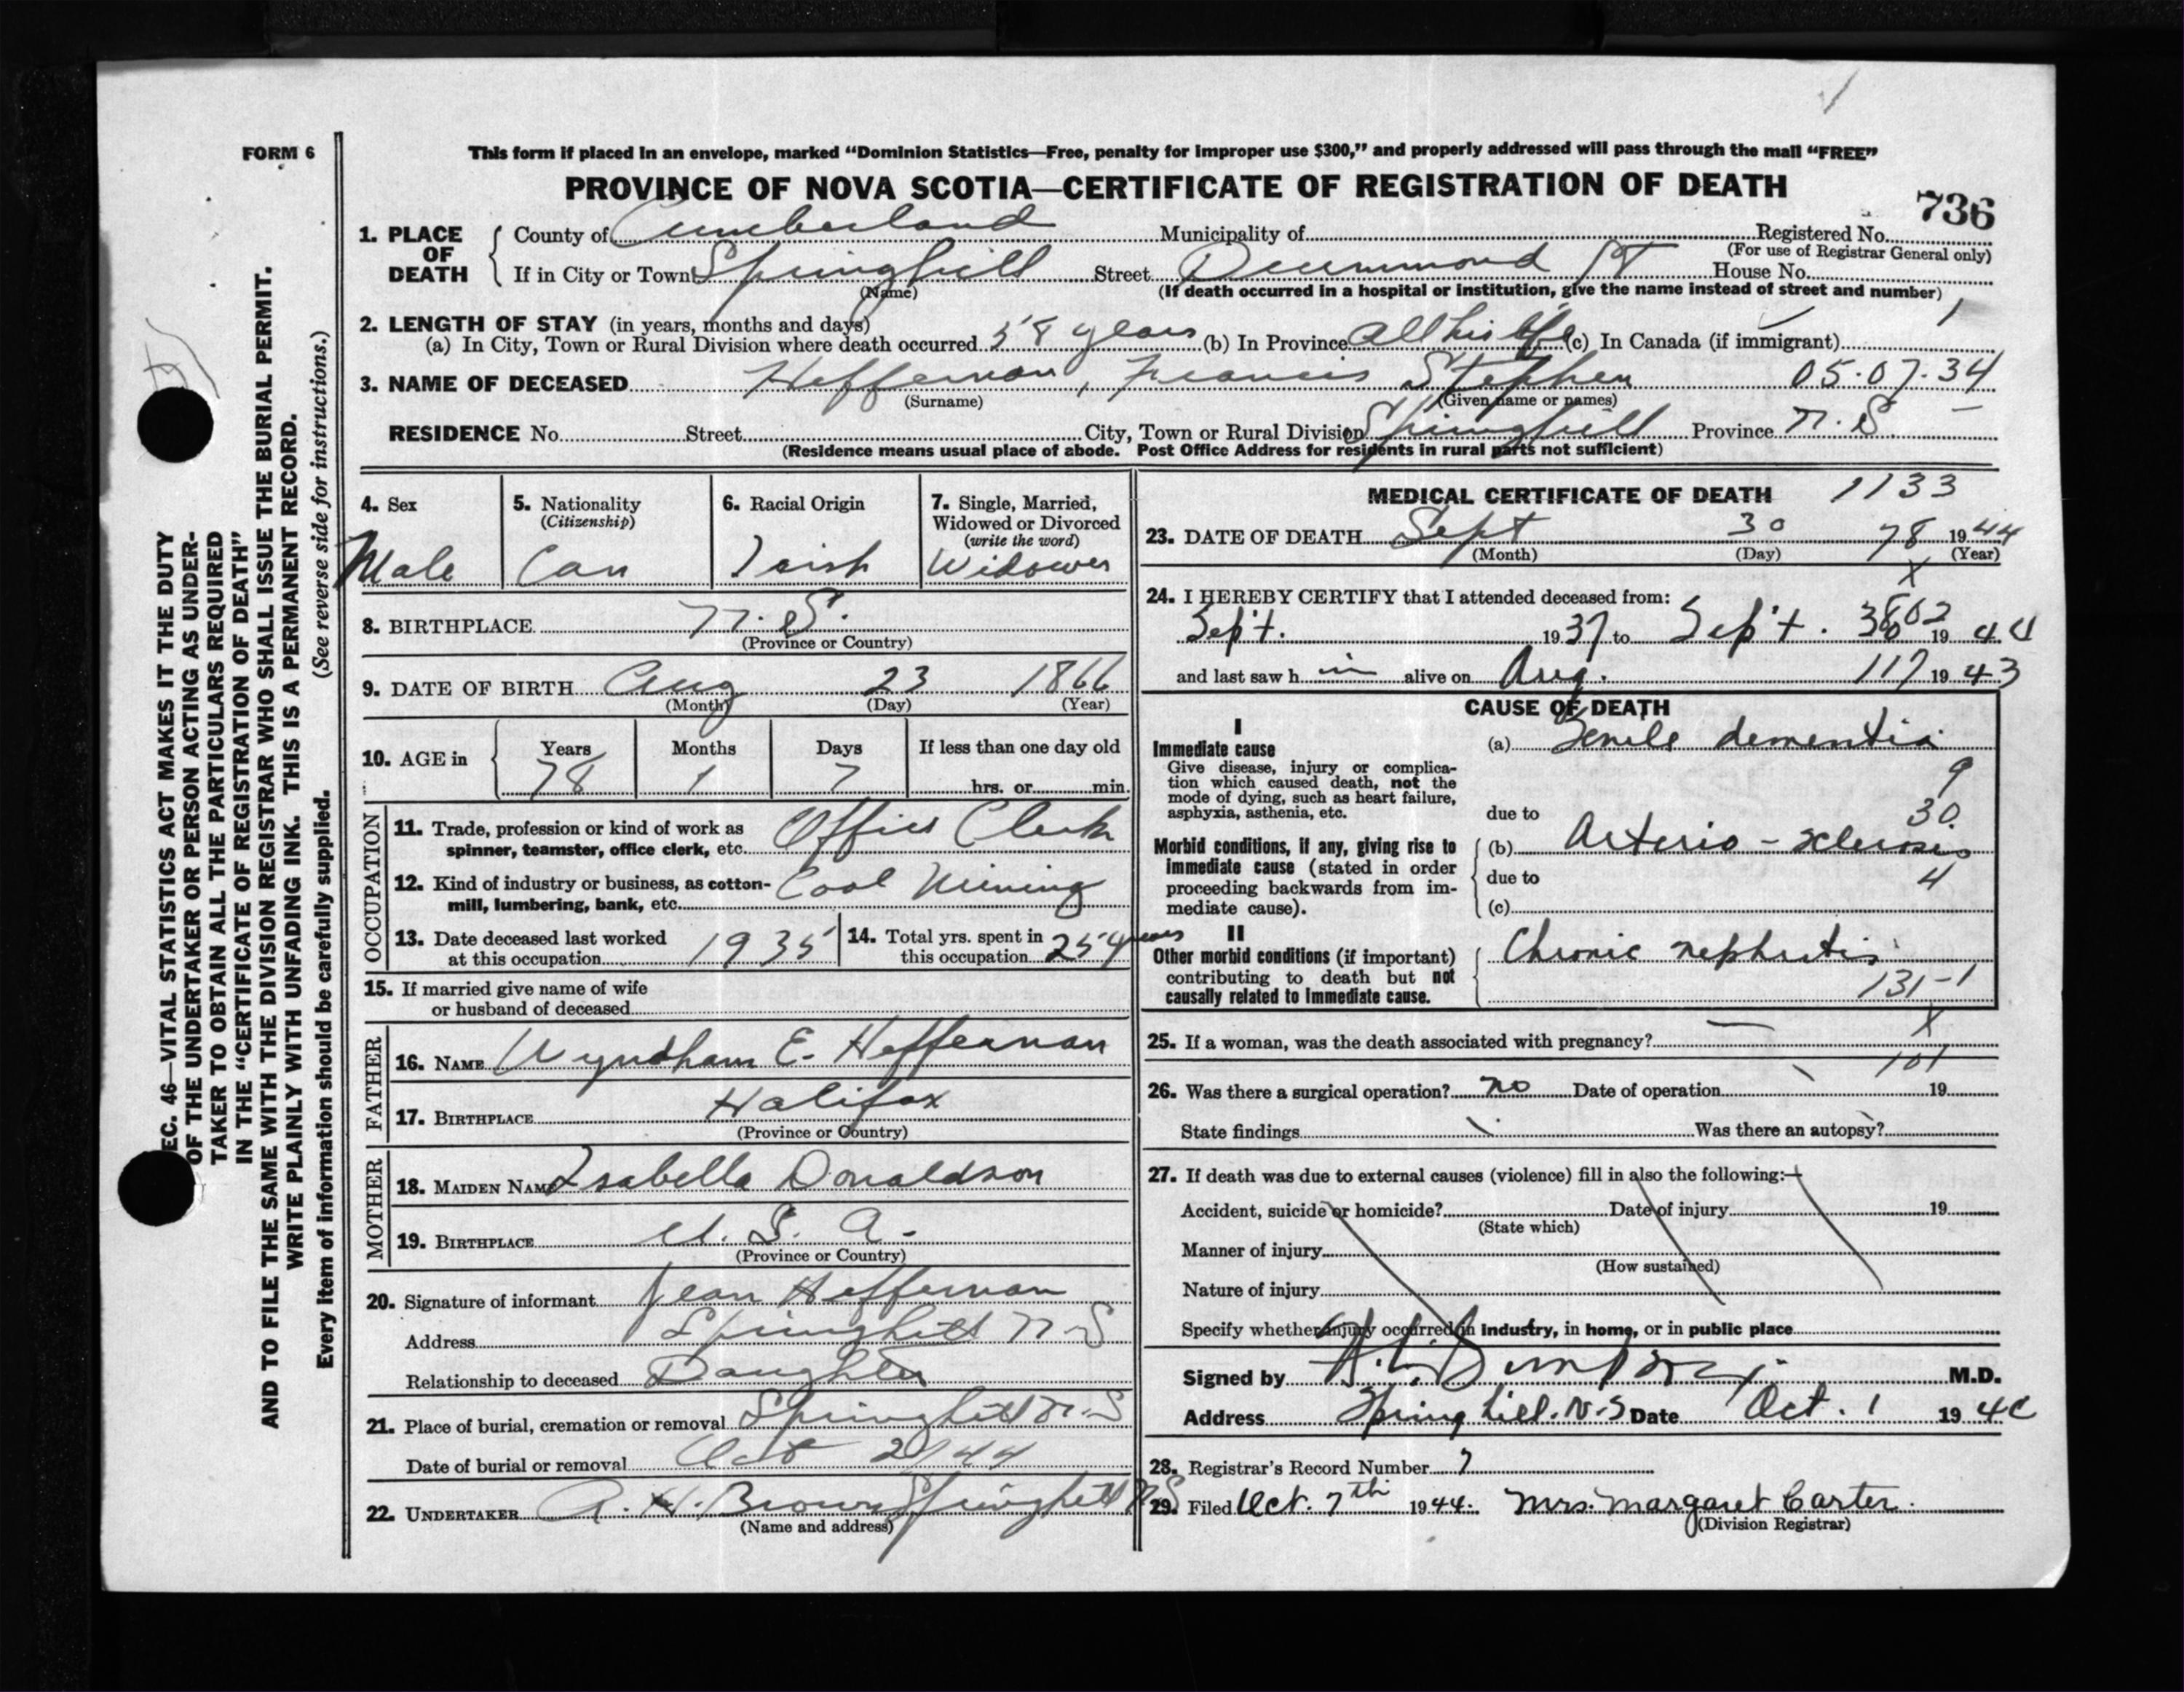 FORM 6
This form if placed in an envelope, marked “Dominion Statistics—Free, penalty for improper use $300,” and properly addressed will pass through the mail “FREE”
PROVINCE OF NOVA SCOTIA—CERTIFICATE OF REGISTRATION OF DEATH
736
1. PLACE OF DEATH
County of Cumberland Municipality of Registered No.
(For use of Registrar General only)
If in City or Town Springhill Street Drummond St House No.
(Name) (If death occurred in a hospital or institution, give the name instead of street and number)
2. LENGTH OF STAY (in years, months and days)
(a) In City, Town or Rural Division where death occurred 58 years (b) In Province All his life (c) In Canada (if immigrant)
3. NAME OF DECEASED Heffernan, Francis Stephen 05.07.34
(Surname) (Given name or names)
RESIDENCE No. Street City, Town or Rural Division Springhill Province N.S.
(Residence means usual place of abode. Post Office Address for residents in rural parts not sufficient)
4. Sex
Male
5. Nationality
(Citizenship)
Can
6. Racial Origin
Irish
7. Single, Married, Widowed or Divorced
(write the word)
Widower
8. BIRTHPLACE N.S.
(Province or Country)
9. DATE OF BIRTH Aug 23 1866
(Month) (Day) (Year)
10. AGE in Years Months Days If less than one day old
78 1 7 hrs. or min.
OCCUPATION
11. Trade, profession or kind of work as Office Clerk
spinner, teamster, office clerk, etc.
12. Kind of industry or business, as cotton- Coal Mining
mill, lumbering, bank, etc.
13. Date deceased last worked
at this occupation 1935
14. Total yrs. spent in
this occupation 25 years
15. If married give name of wife
or husband of deceased
FATHER
16. NAME Wyndham E. Heffernan
17. BIRTHPLACE Halifax
(Province or Country)
MOTHER
18. MAIDEN NAME Isabella Donaldson
19. BIRTHPLACE U.S.A.
(Province or Country)
20. Signature of informant Jean Heffernan
Address Springhill N-S
Relationship to deceased Daughter
21. Place of burial, cremation or removal Springhill N-S
Date of burial or removal Oct 2/44
22. UNDERTAKER A. H. Brown Springhill N S
(Name and address)
MEDICAL CERTIFICATE OF DEATH 1133
23. DATE OF DEATH Sept 30 78 1944
(Month) (Day) (Year)
X
24. I HEREBY CERTIFY that I attended deceased from:
Sep't. 1937 to Sep't. 1944
and last saw h im alive on Aug. 1943
CAUSE OF DEATH
I
Immediate cause
Give disease, injury or complica-
tion which caused death, not the
mode of dying, such as heart failure,
asphyxia, asthenia, etc.
(a) Senile dementia
9
30
due to
Morbid conditions, if any, giving rise to
immediate cause (stated in order
proceeding backwards from im-
mediate cause).
(b) Arterio-sclerosis
due to 4
(c)
II
Other morbid conditions (if important)
contributing to death but not
causally related to immediate cause.
Chronic nephritis
131-1
X
25. If a woman, was the death associated with pregnancy?
101
26. Was there a surgical operation? no Date of operation 19
State findings Was there an autopsy?
27. If death was due to external causes (violence) fill in also the following:—
Accident, suicide or homicide? Date of injury 19
(State which)
Manner of injury
(How sustained)
Nature of injury
Specify whether injury occurred in industry, in home, or in public place
Signed by M.D.
Address Springhill. N.S Date Oct. 1 19
28. Registrar's Record Number 7
29. Filed Oct. 7th 1944. Mrs. Margaret Carter.
(Division Registrar)
EC. 46—VITAL STATISTICS ACT MAKES IT THE DUTY
OF THE UNDERTAKER OR PERSON ACTING AS UNDER-
TAKER TO OBTAIN ALL THE PARTICULARS REQUIRED
IN THE “CERTIFICATE OF REGISTRATION OF DEATH”
AND TO FILE THE SAME WITH THE DIVISION REGISTRAR WHO SHALL ISSUE THE BURIAL PERMIT.
WRITE PLAINLY WITH UNFADING INK. THIS IS A PERMANENT RECORD.
Every item of information should be carefully supplied. (See reverse side for instructions.)